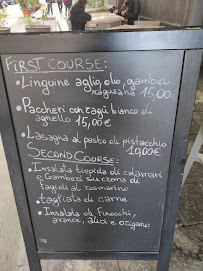 FIRST COURSE:
• Linguine aglio, olio, gamberi
ragusana 15,00€
• Paccheri con ragù bianco di
agnello 15,00€
• Lasagna al pesto di pistacchio
10,00€
SECOND COURSE:
• Insalata tiepida di calamari
e Gamberi su crema di
fagioli al rosmarino
• tagliata di carne
• Insalata di finocchi,
arance, alici e origano